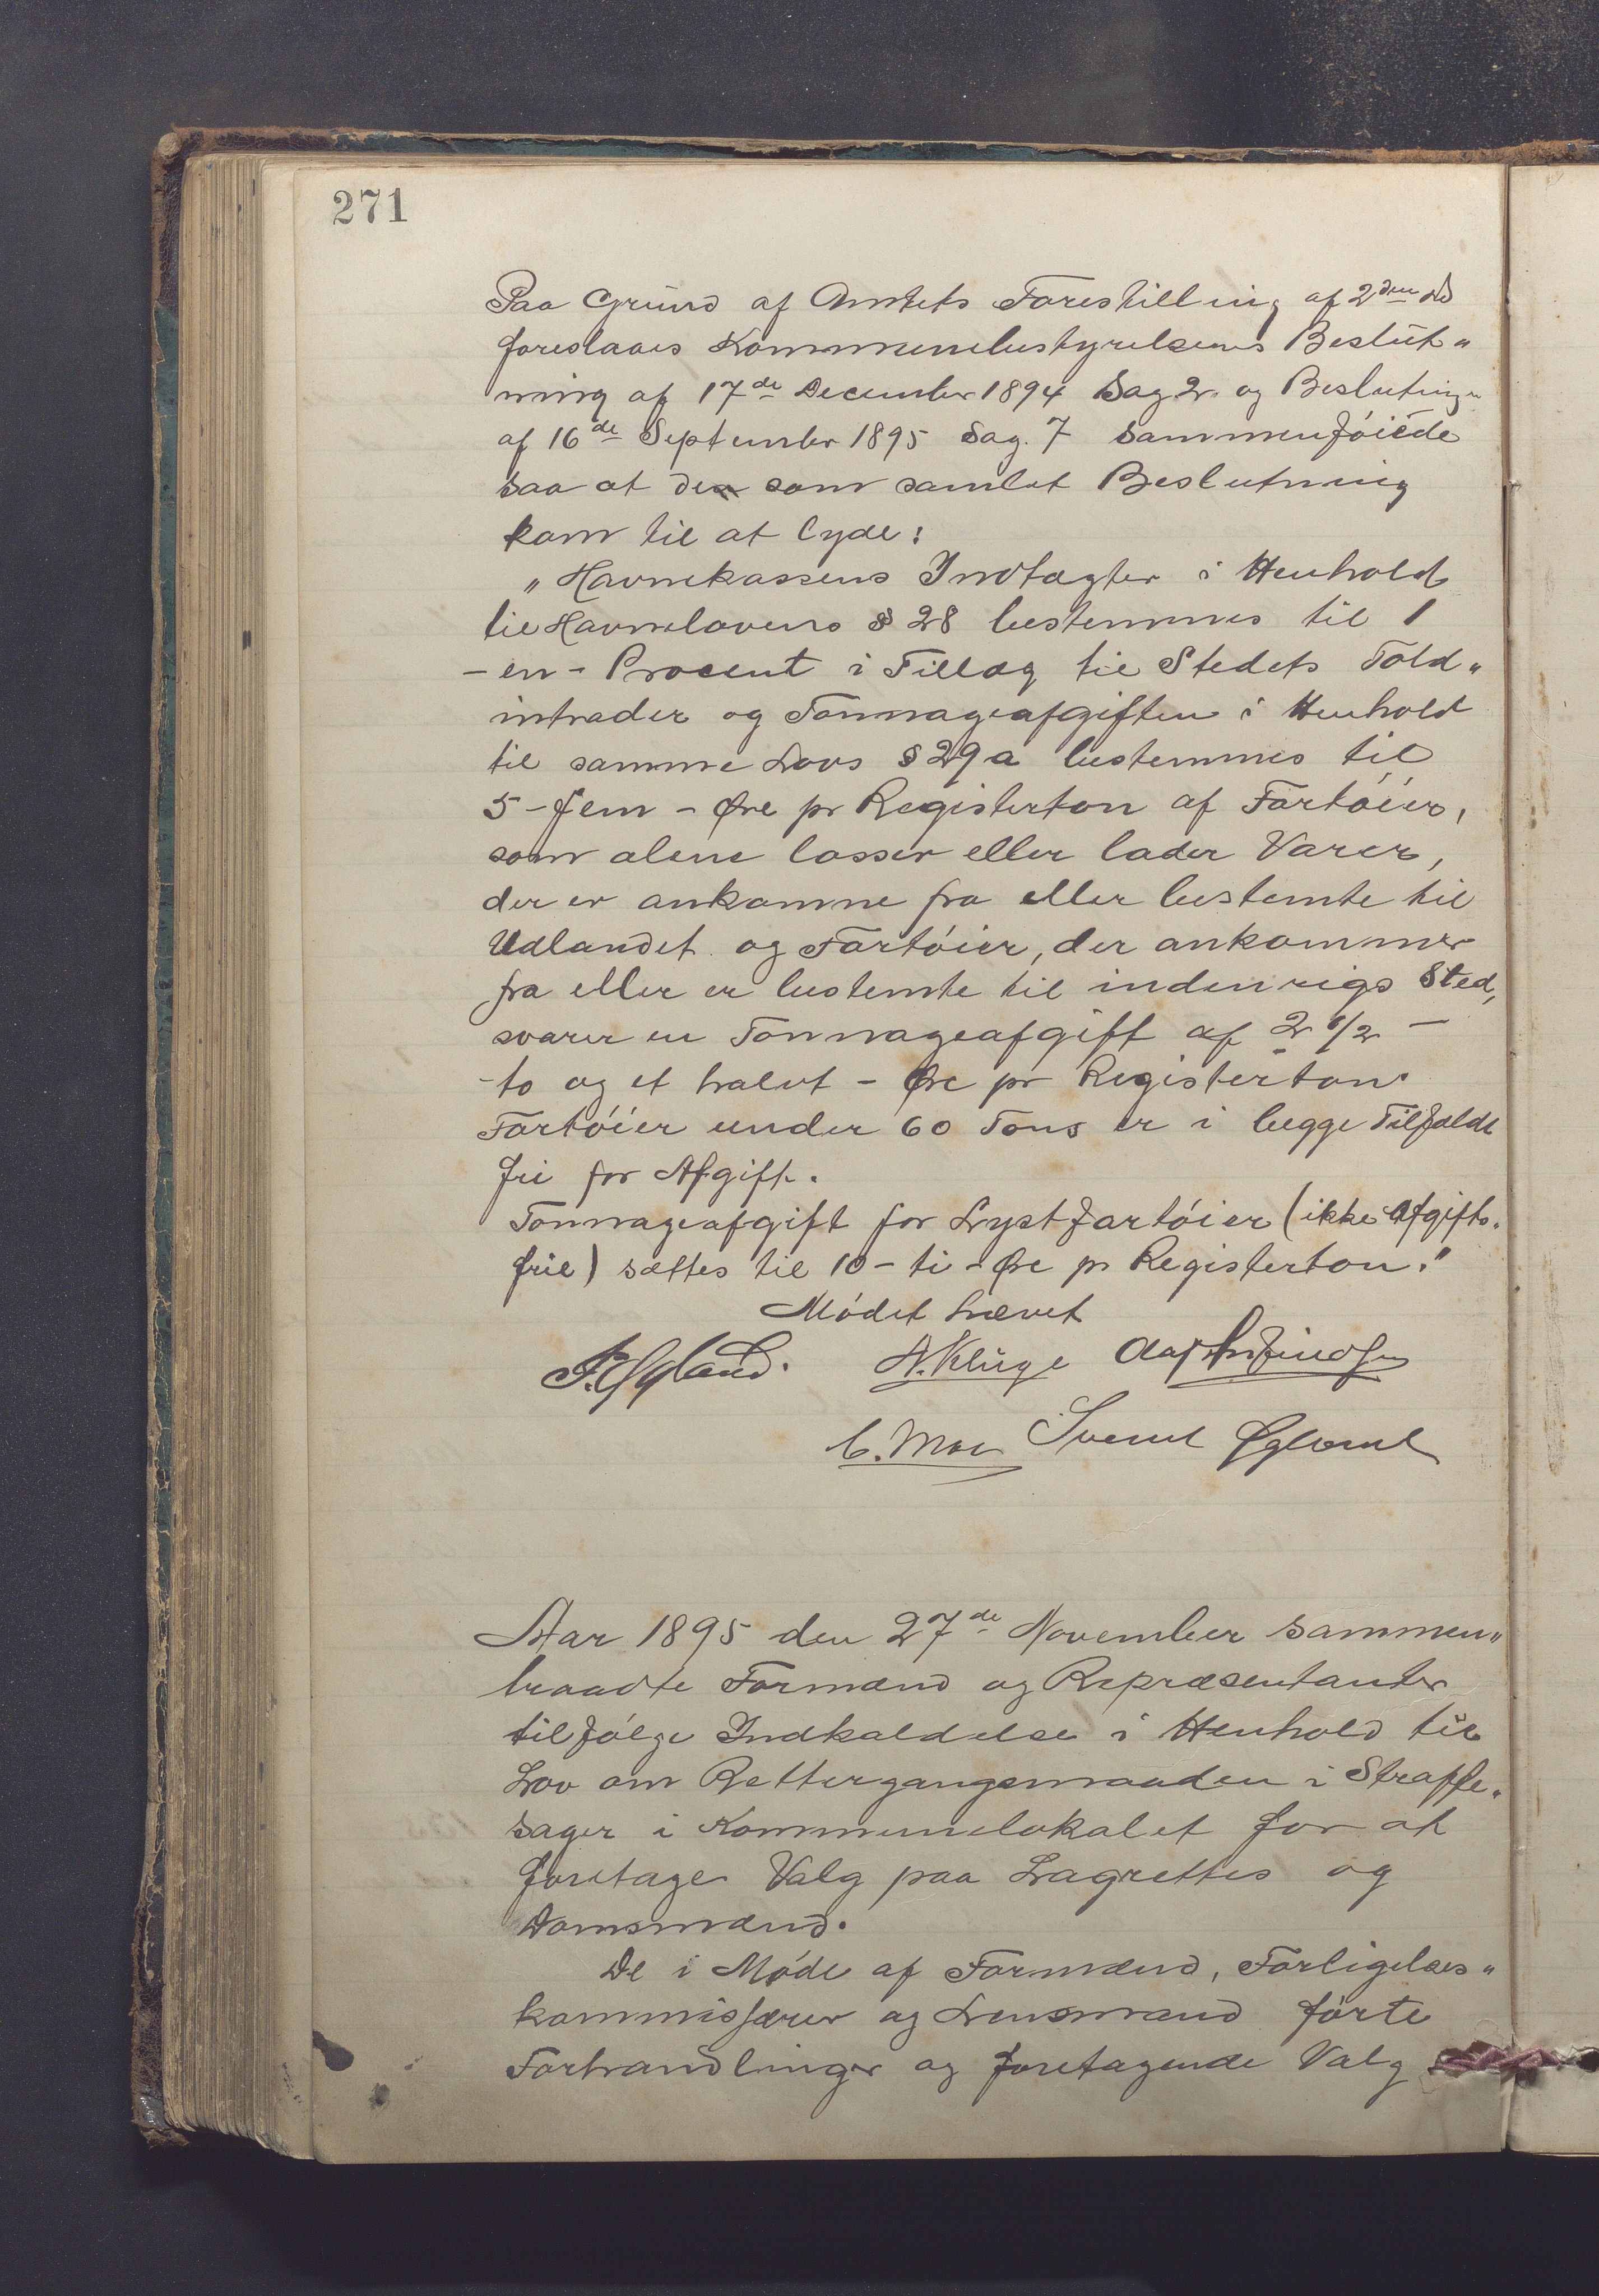 271
Paa Grund af Amtets Forestilling af 2den ds
foreslaaes Kommunebestyrelsens Beslut„
ning af 17de December 1894 Sag 2 og Beslutning
af 16de September 1895 Sag. 7 sammenføiede
saa at den som samlet Beslutning
kom til at lyde:
„Havnekassens Indtægter i Henhold
til Havnelovens § 28 bestemmes til 1
- en - Procent i Tillæg til Stedets Told„
intrader og Tonnageafgiften i Henhold
til samme Lovs § 29 a bestemmes til
5 - fem - Øre pr Registerton af Fartøier,
som alene losser eller lader Varer,
der er ankomne fra eller bestemte til
Udlandet og Fartøier, der ankommer
fra eller er bestemte til indenrigs Sted,
svarer en Tonnageafgift af 2 1/2 -
- to og et halvt - Øre pr Registerton.
Fartøier under 60 Tons er i begge Tilfælde
fri for Afgift.
Tonnageafgift for Lystfartøier (ikke afgifts„
frie) sættes til 10 - ti - Øre pr Registerton."
Mødet hævet
A. Kluge
C. Moe Svend Øglænd
Aar 1895 den 27de November sammen„
traadte Formænd og Repræsentanter
tilfølge Indkaldelse i Henhold til
Lov om Rettergangsmaaden i Straffe„
sager i Kommunelokalet for at
foretage Valg paa Lagrettes og
Domsmænd.
De i Møde af Formænd, Forligelses„
kommissærer og Lensmand førte
Forhandlinger og foretagende Valg